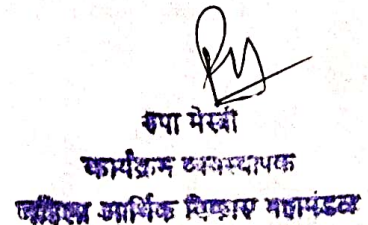 रुपा मेस्त्री
कार्यक्रम व्यवस्थापक
आर्थिक विकास महामंडळ